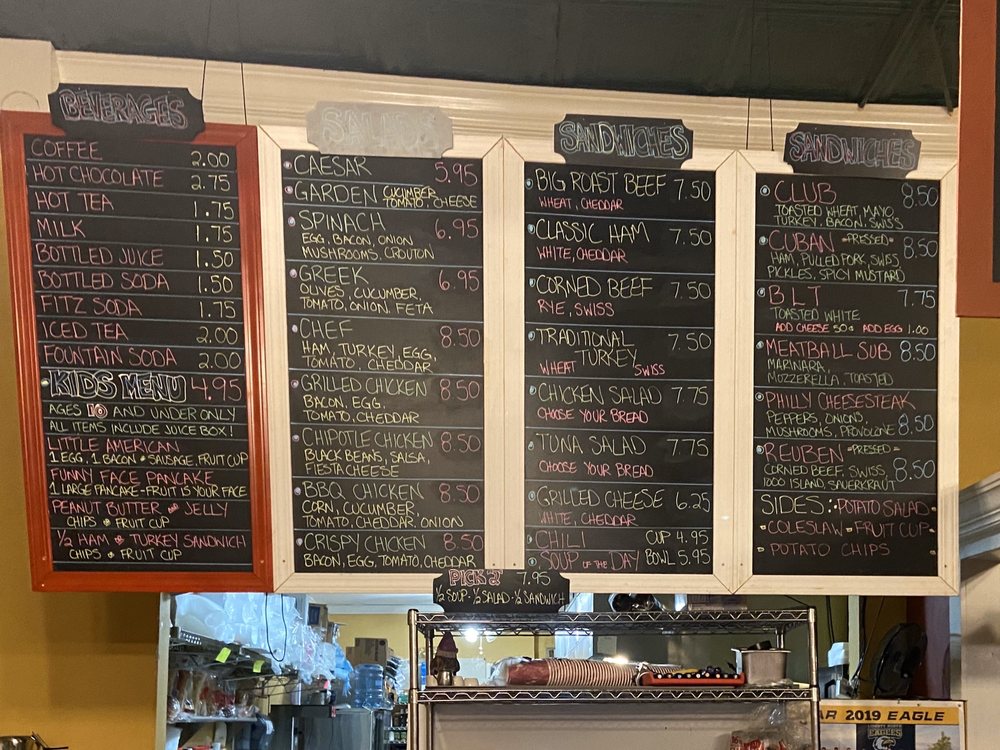 BEVERAGES
COFFEE 2.00
HOT CHOCOLATE 2.75
HOT TEA 1.75
MILK 1.75
BOTTLED JUICE 1.50
BOTTLED SODA 1.50
FITZ SODA 1.75
ICED TEA 2.00
FOUNTAIN SODA 2.00
KIDS MENU 4.95
AGES 10 AND UNDER ONLY
ALL ITEMS INCLUDE JUICE BOX!
LITTLE AMERICAN
1 EGG, 1 BACON OR SAUSAGE, FRUIT CUP
FUNNY FACE PANCAKE
1 LARGE PANCAKE - FRUIT IS YOUR FACE
PEANUT BUTTER AND JELLY
CHIPS OR FRUIT CUP
1/2 HAM OR TURKEY SANDWICH
CHIPS OR FRUIT CUP
SALADS
CAESAR 5.95
GARDEN CUCUMBER
TOMATO, CHEESE
SPINACH 6.95
EGG, BACON, ONION
MUSHROOMS, CROUTON
GREEK 6.95
OLIVES, CUCUMBER,
TOMATO, ONION, FETA
CHEF 8.50
HAM, TURKEY, EGG,
TOMATO, CHEDDAR
GRILLED CHICKEN 8.50
BACON, EGG,
TOMATO, CHEDDAR
CHIPOTLE CHICKEN 8.50
BLACK BEANS, SALSA,
FIESTA CHEESE
BBQ CHICKEN 8.50
CORN, CUCUMBER,
TOMATO, CHEDDAR, ONION
CRISPY CHICKEN 8.50
BACON, EGG, TOMATO, CHEDDAR
SANDWICHES
BIG ROAST BEEF 7.50
WHEAT, CHEDDAR
CLASSIC HAM 7.50
WHITE, CHEDDAR
CORNED BEEF 7.50
RYE, SWISS
TRADITIONAL 7.50
TURKEY
WHEAT SWISS
CHICKEN SALAD 7.75
CHOOSE YOUR BREAD
TUNA SALAD 7.75
CHOOSE YOUR BREAD
GRILLED CHEESE 6.25
WHITE, CHEDDAR
CHILI CUP 4.95
SOUP OF THE DAY BOWL 5.95
SANDWICHES
CLUB 8.50
TOASTED WHEAT, MAYO,
TURKEY, BACON, SWISS
CUBAN -PRESSED- 8.50
HAM, PULLED PORK, SWISS,
PICKLES, SPICY MUSTARD
BLT 7.75
TOASTED WHITE
ADD CHEESE 50¢ ADD EGG 1.00
MEATBALL SUB 8.50
MARINARA,
MOZZERELLA, TOASTED
PHILLY CHEESESTEAK
PEPPERS, ONIONS,
MUSHROOMS, PROVOLONE 8.50
REUBEN -PRESSED-
CORNED BEEF, SWISS, 8.50
1000 ISLAND, SAUERKRAUT
SIDES: POTATO SALAD -
- COLESLAW - FRUIT CUP -
- POTATO CHIPS
PICK 2 7.95
1/2 SOUP - 1/2 SALAD - 1/2 SANDWICH
2019 EAGLE
LIBERTY NORTH
EAGLES